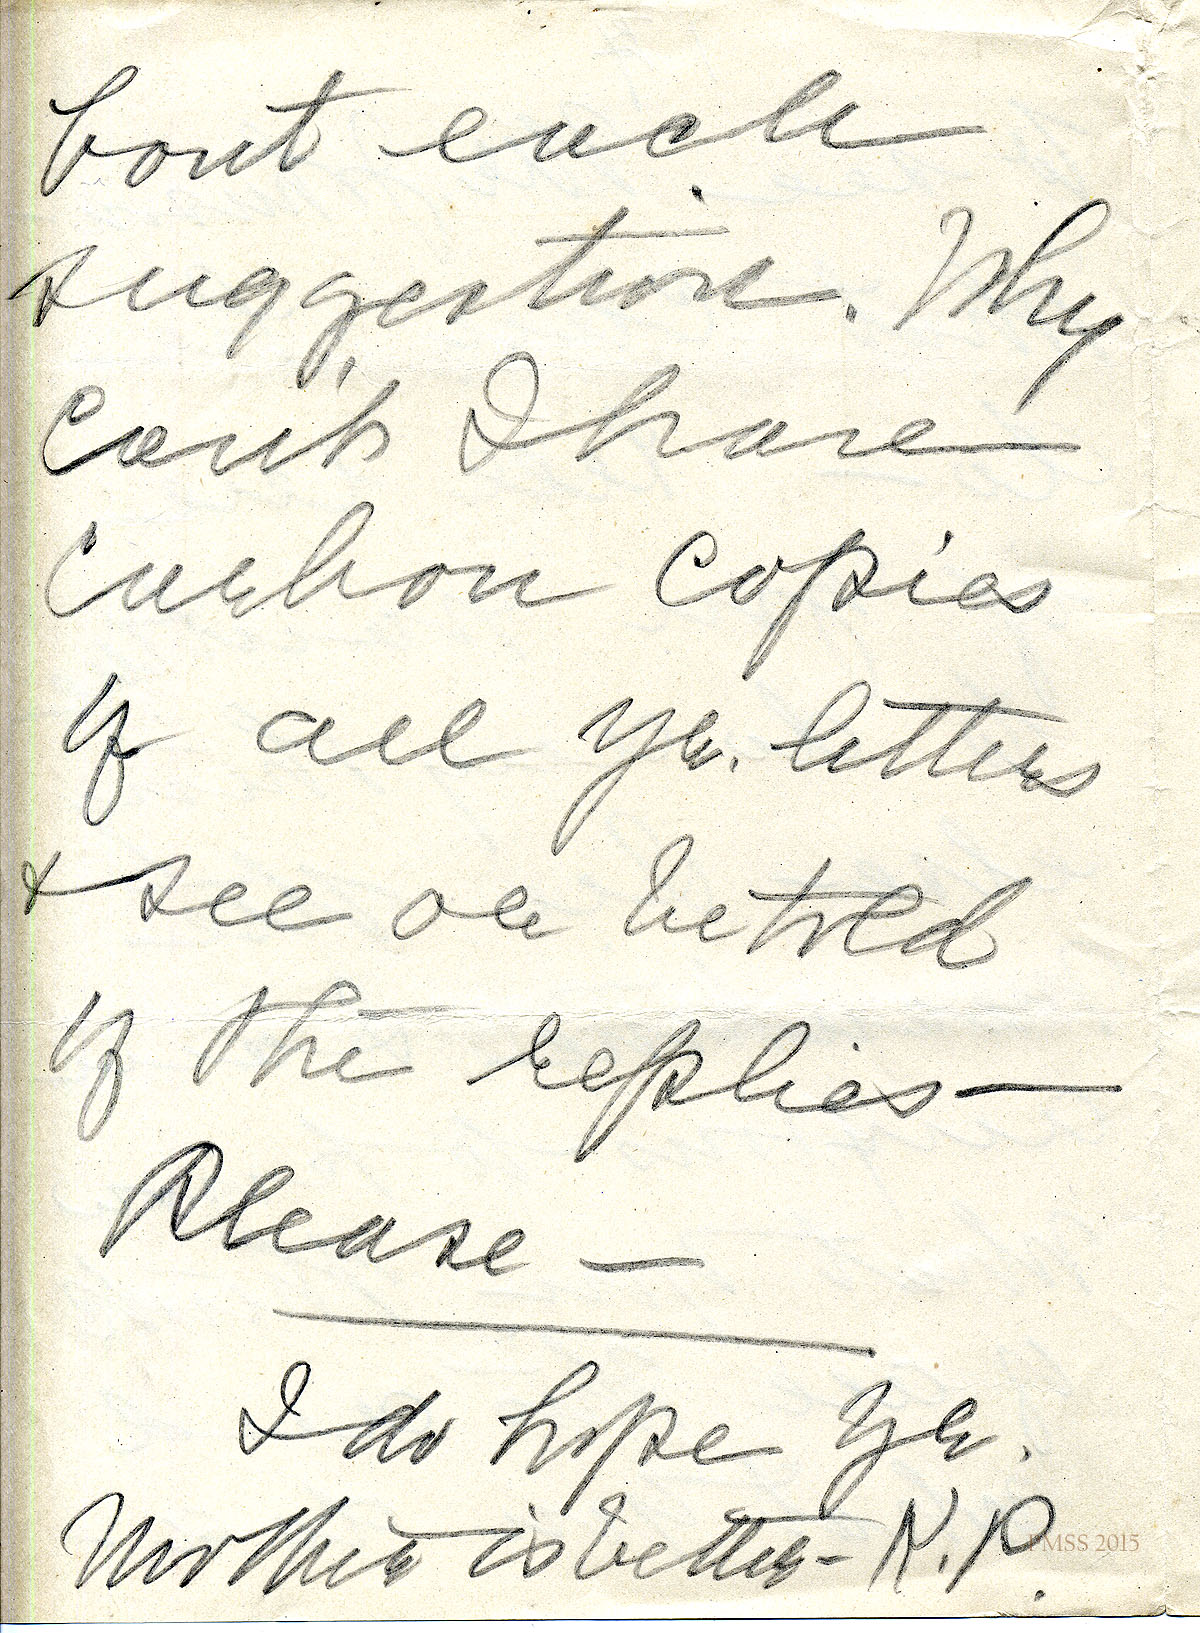 bout each
suggestion. Why
can't I have
carbon copies
of all yr. letters
& see or be told
of the replies—
Please —
I do hope yr.
Mother is better - K.P.
PMSS 2015